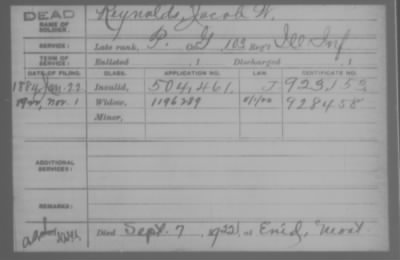 DEAD
NAME OF SOLDIER: Reynolds, Jacob W.
SERVICE: Late rank, P. Co. G, 103 Reg't Ill Inf
TERM OF SERVICE: Enlisted , 1 Discharged , 1
DATE OF FILING. CLASS. APPLICATION NO. LAW. CERTIFICATE NO.
1884, Jan. 22 Invalid, 504,461. J 923,153
Nov. 1 Widow, 1196289 928458
Minor,
ADDITIONAL SERVICES:
REMARKS:
Died Sept. 7, 1922, at Enid, Mont